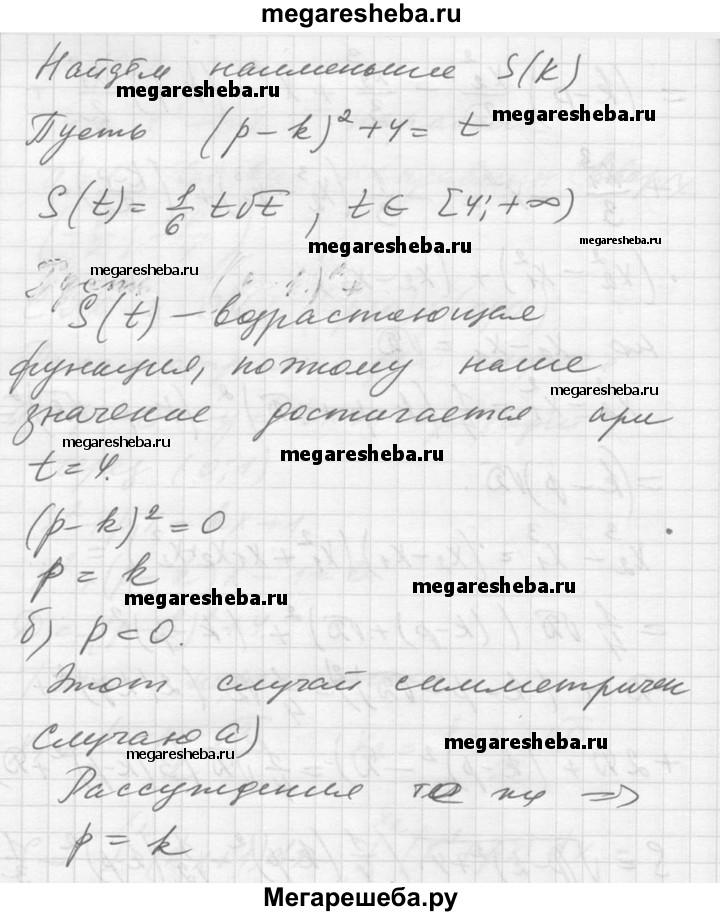 megaresheba.ru
Найдём наименьшие S(k)
megaresheba.ru
megaresheba.ru
Пусть (p-k)²+4= t
S(t)= 1/6 t√t, t∈ [4;+∞)
megaresheba.ru
megaresheba.ru
megaresheba.ru
S(t) – возрастающая
функция, поэтому наше
megaresheba.ru
значение достигается при
megaresheba.ru
megaresheba.ru
t=4.
(p-k)²=0
p= k
megaresheba.ru
megaresheba.ru
б) p<0.
Этот случай симметричен
случаю а)
megaresheba.ru
megaresheba.ru
Рассуждения те же =>
p=k
Мегарешеба.ру